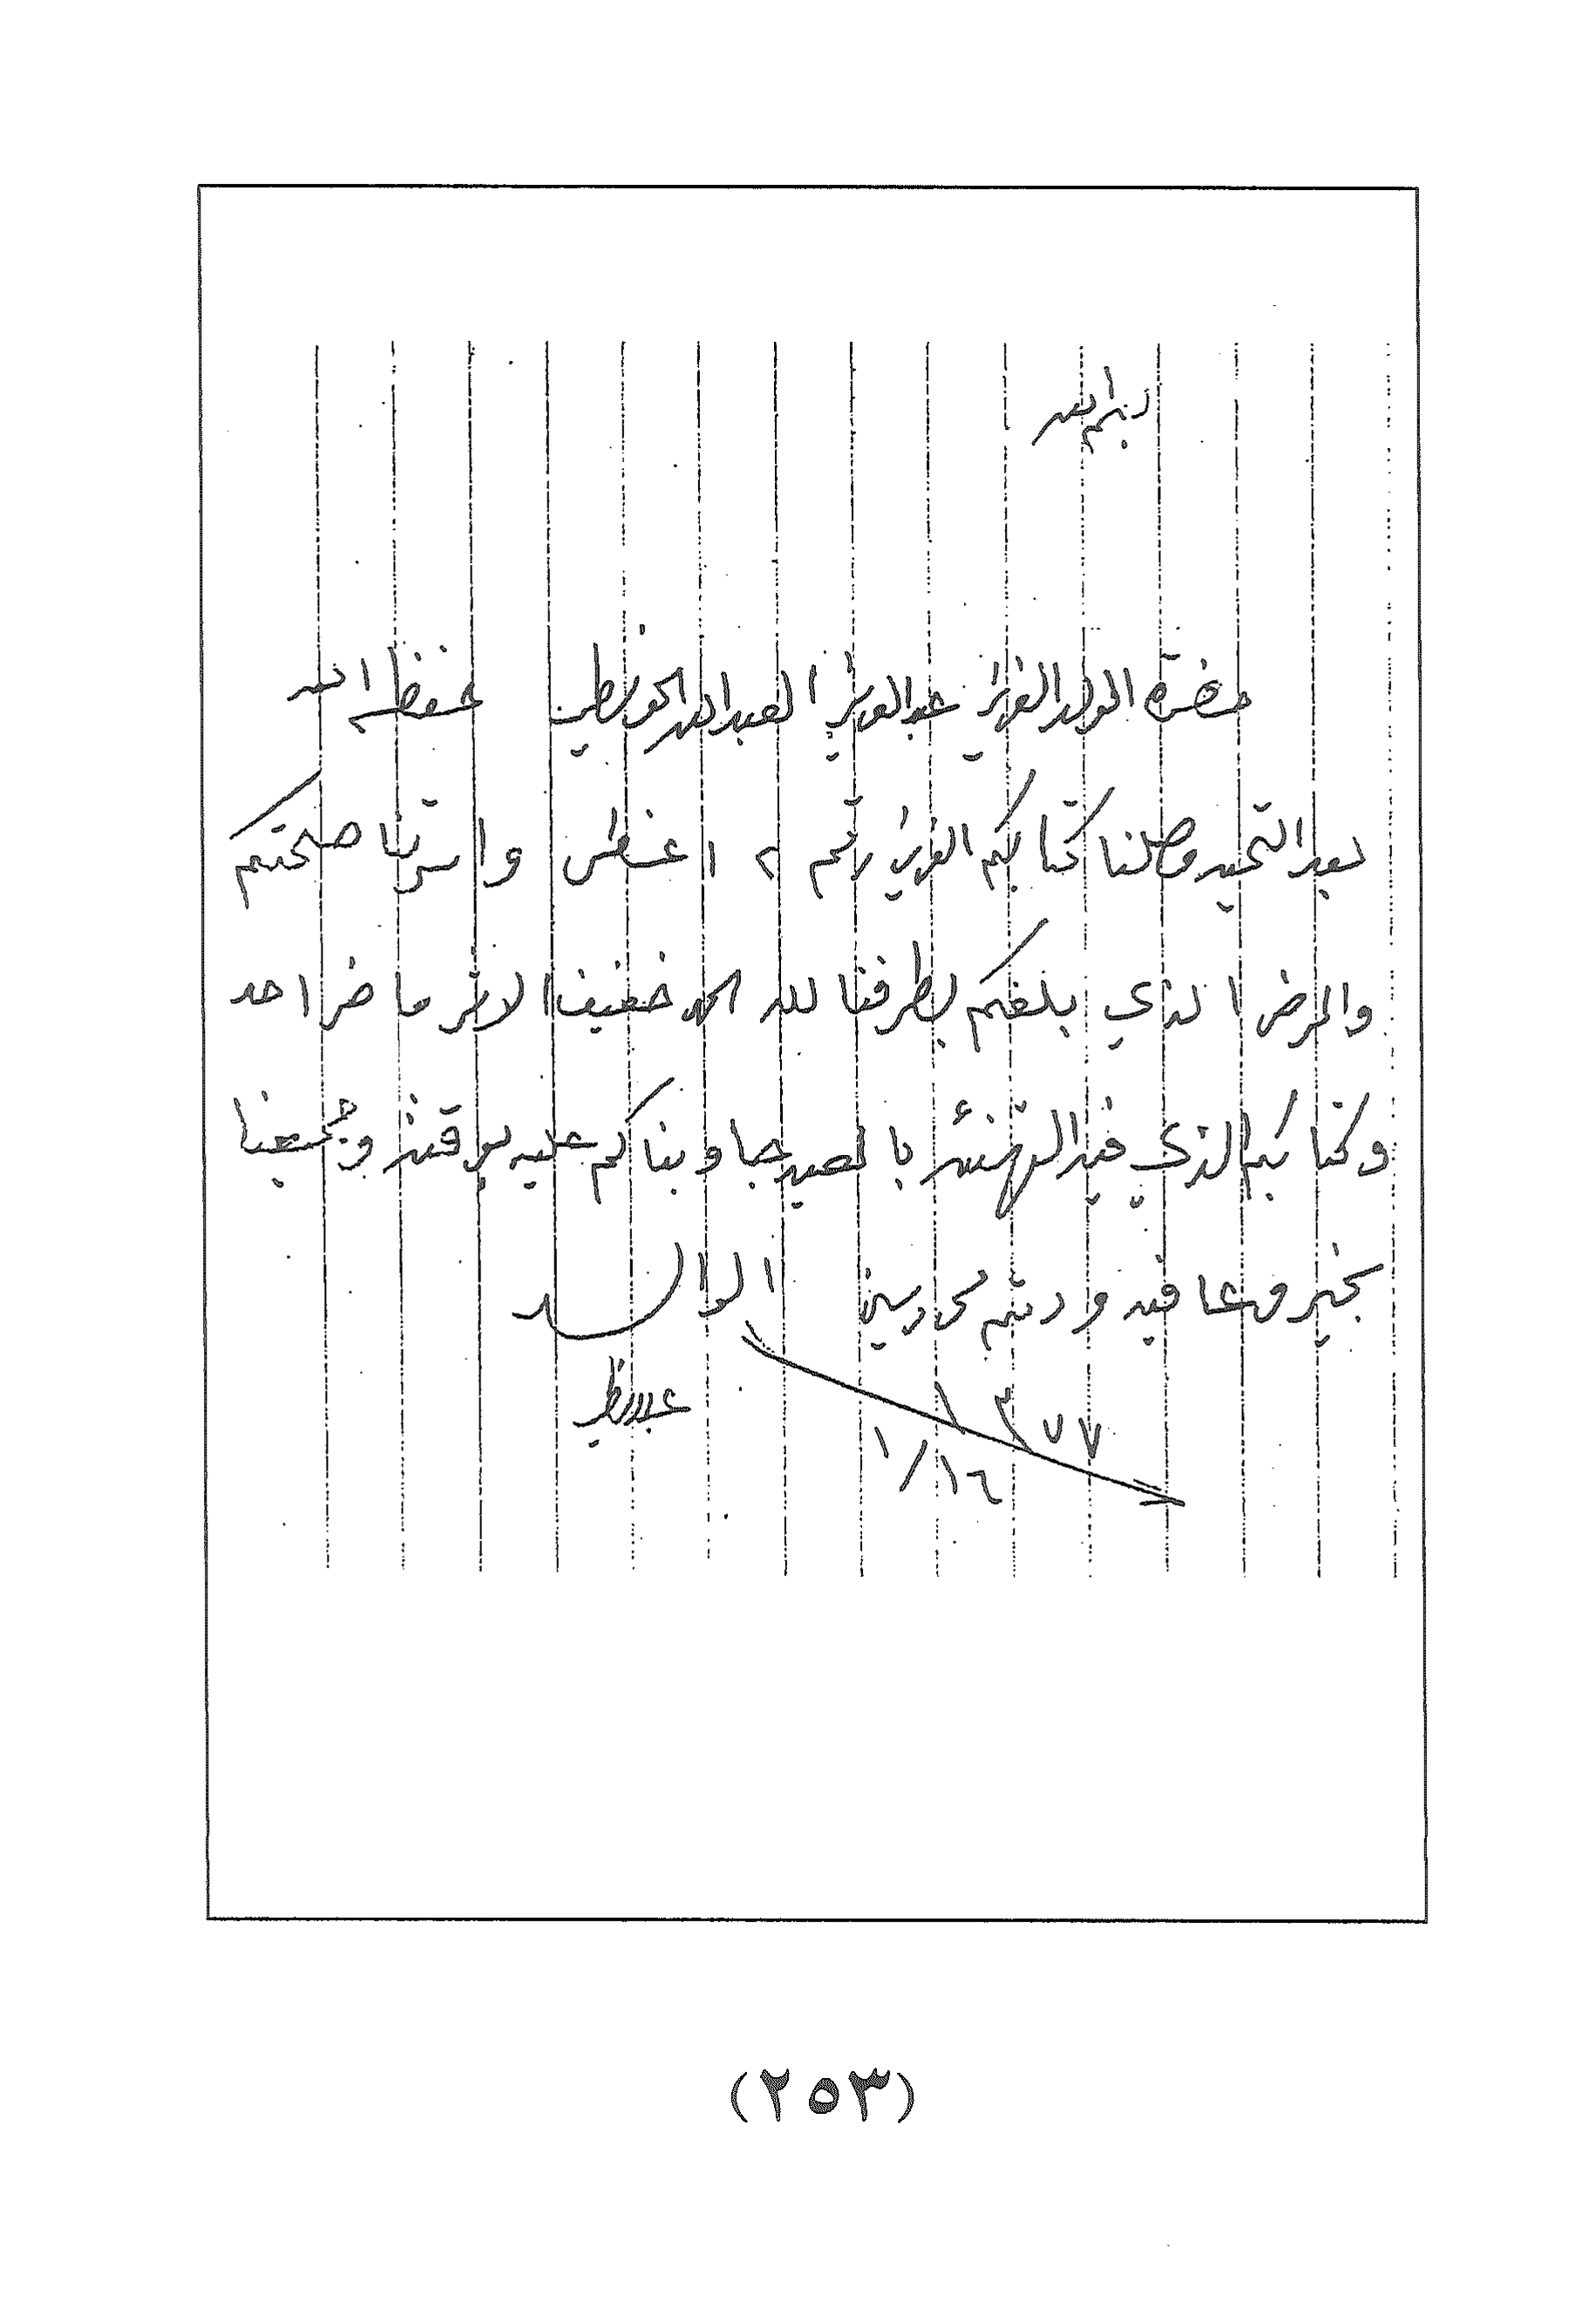 بسم الله
حضرة الولد العزيز عبد العزيز العبد الله الحويطي حفظه الله
بعد التحيه وصلنا كتابكم العزيز رقم ٢ اغسطس واسرتنا صحتكم
والمرض الذي بلغكم بطرفنا لله الحمد خفيف الاثر ما ضر احد
وكتابكم الذي فيه التهنئه بالعيد جاوبناكم عليه بوقته وجميعنا
بخير وعافيه ودمتم محروسين الوالد
١٣٧٧
١/١٦
(٢٥٣)